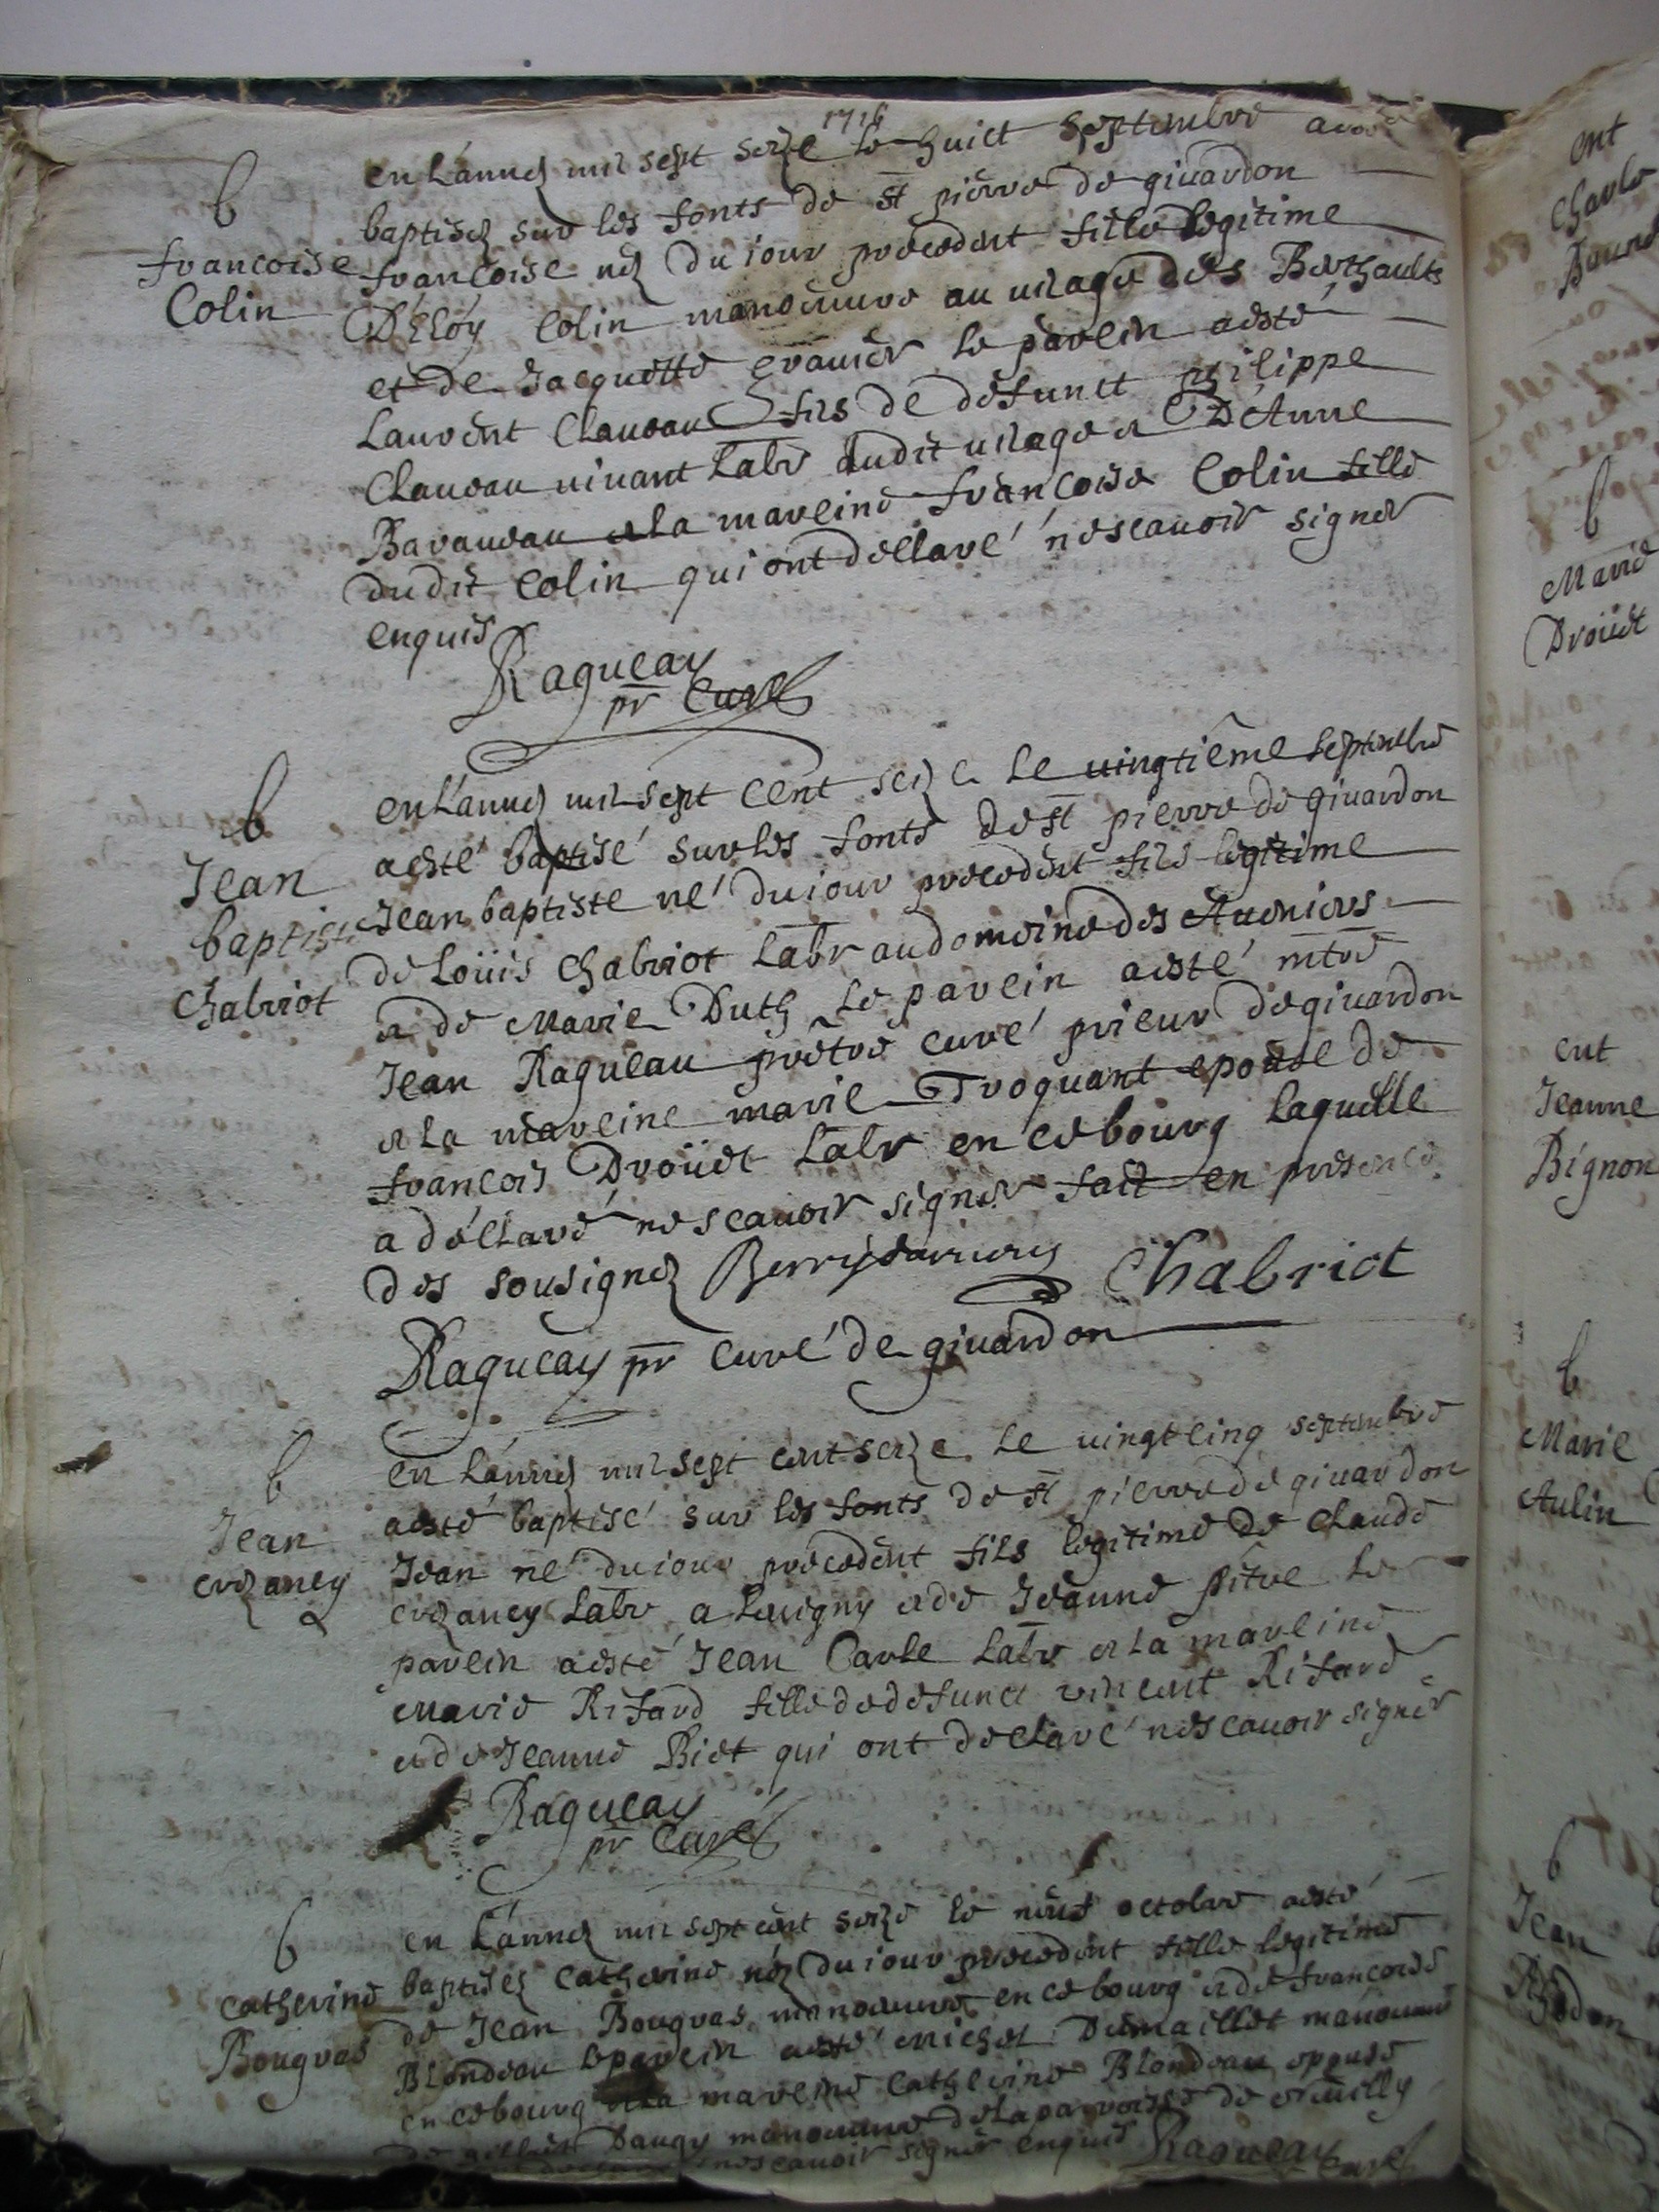 1716
b
francoise
Colin
en Lannéz mil sept seize le huict septembre a esté
baptiséz sur les fonts de st pierre de giuardon
francoise néz du iour precedent fille legitime
D'Eloy Colin manoeuure au uilage des Berthaults
et de Jacquette le parein a esté
Laurent Claueau fils de defunct philippe
Claueau uiuant Labr dudit uilage et D'Anne
Baraudeau et la mareine francoise Colin fille
dudit Colin qui ont déclaré ne scauoir signer
enquis
Ragueau
pr Curé
b
Jean
baptiste
Chabriot
en Lannéz mil sept cent seize le uingtième septembre
a esté baptisé sur les fonts de st pierre de giuardon
Jean baptiste né du iour precedent fils legitime
de Loüis Chabriot Labr au domeine des Aueniers
et de Marie Duth Le parein a esté mtre
Jean Ragueau prêtre curé prieur de giuardon
et la mareine marie Troquant epouse de
francois Droüet Labr en ce bourg laquelle
a déclaré ne scauoir signer fait en presence
des sousignez Chabriot
Ragueau pr curé de giuardon
b
Jean
crezancy
en Lannéz mil sept cent seize le uingt cinq septembre
a esté baptisé sur les fonts de st pierre de giuardon
Jean né du iour precedent fils legitime de Claude
crezancy Labr a Leuigny et de Jeanne pitre le
parein a esté Jean Carle Labr et la mareine
Marie Rifard fille de defunct vincent Rifard
et de Jeanne Biet qui ont declaré ne scauoir signer
Ragueau
pr Curé
b
Catherine
Bougras
en Lannéz mil sept cent seize le neuf octobre a esté
baptiséz Catherine néz du iour precedent fille legitime
de Jean Bougras manoeuure en ce bourg et de francoise
Blondeau le parein a esté michel Dumaillet manoeuure
en ce bourg et la mareine Catherine Blondeau epouse
de Daugy manoeuure de la paroisse de
ne scauoir signer enquis Ragueau curé
ent
Charle
b
Marie
Droüet
ent
Jeanne
Bignon
b
Marie
Aulin
b
Jean